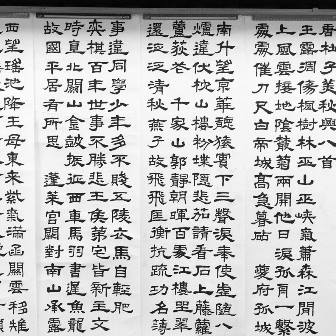 唐杜子美秋興八首
玉露凋傷楓樹林巫山巫峽氣蕭森江間波
上風雲接地陰叢菊兩開他日淚孤舟一繫
處處催刀尺白帝城高急暮砧 夔府孤
南斗望京華聽猿實下三聲淚奉使虛隨八
爐違伏枕山樓粉堞隱悲笳請看石上藤蘿
蘆荻花 千家山郭靜朝暉百處江樓坐翠
還泛泛清秋燕子故飛飛匡衡抗疏功名薄
事違同學少年多不賤五陵衣馬自輕肥
奕棋百年世事不勝悲王侯第宅皆新主文
時直北關山金鼓振征西車馬羽書遲魚龍
故國平居有所思 蓬萊宮闕對南山承露
西望瑤池降王母東來紫氣滿函關雲移雉